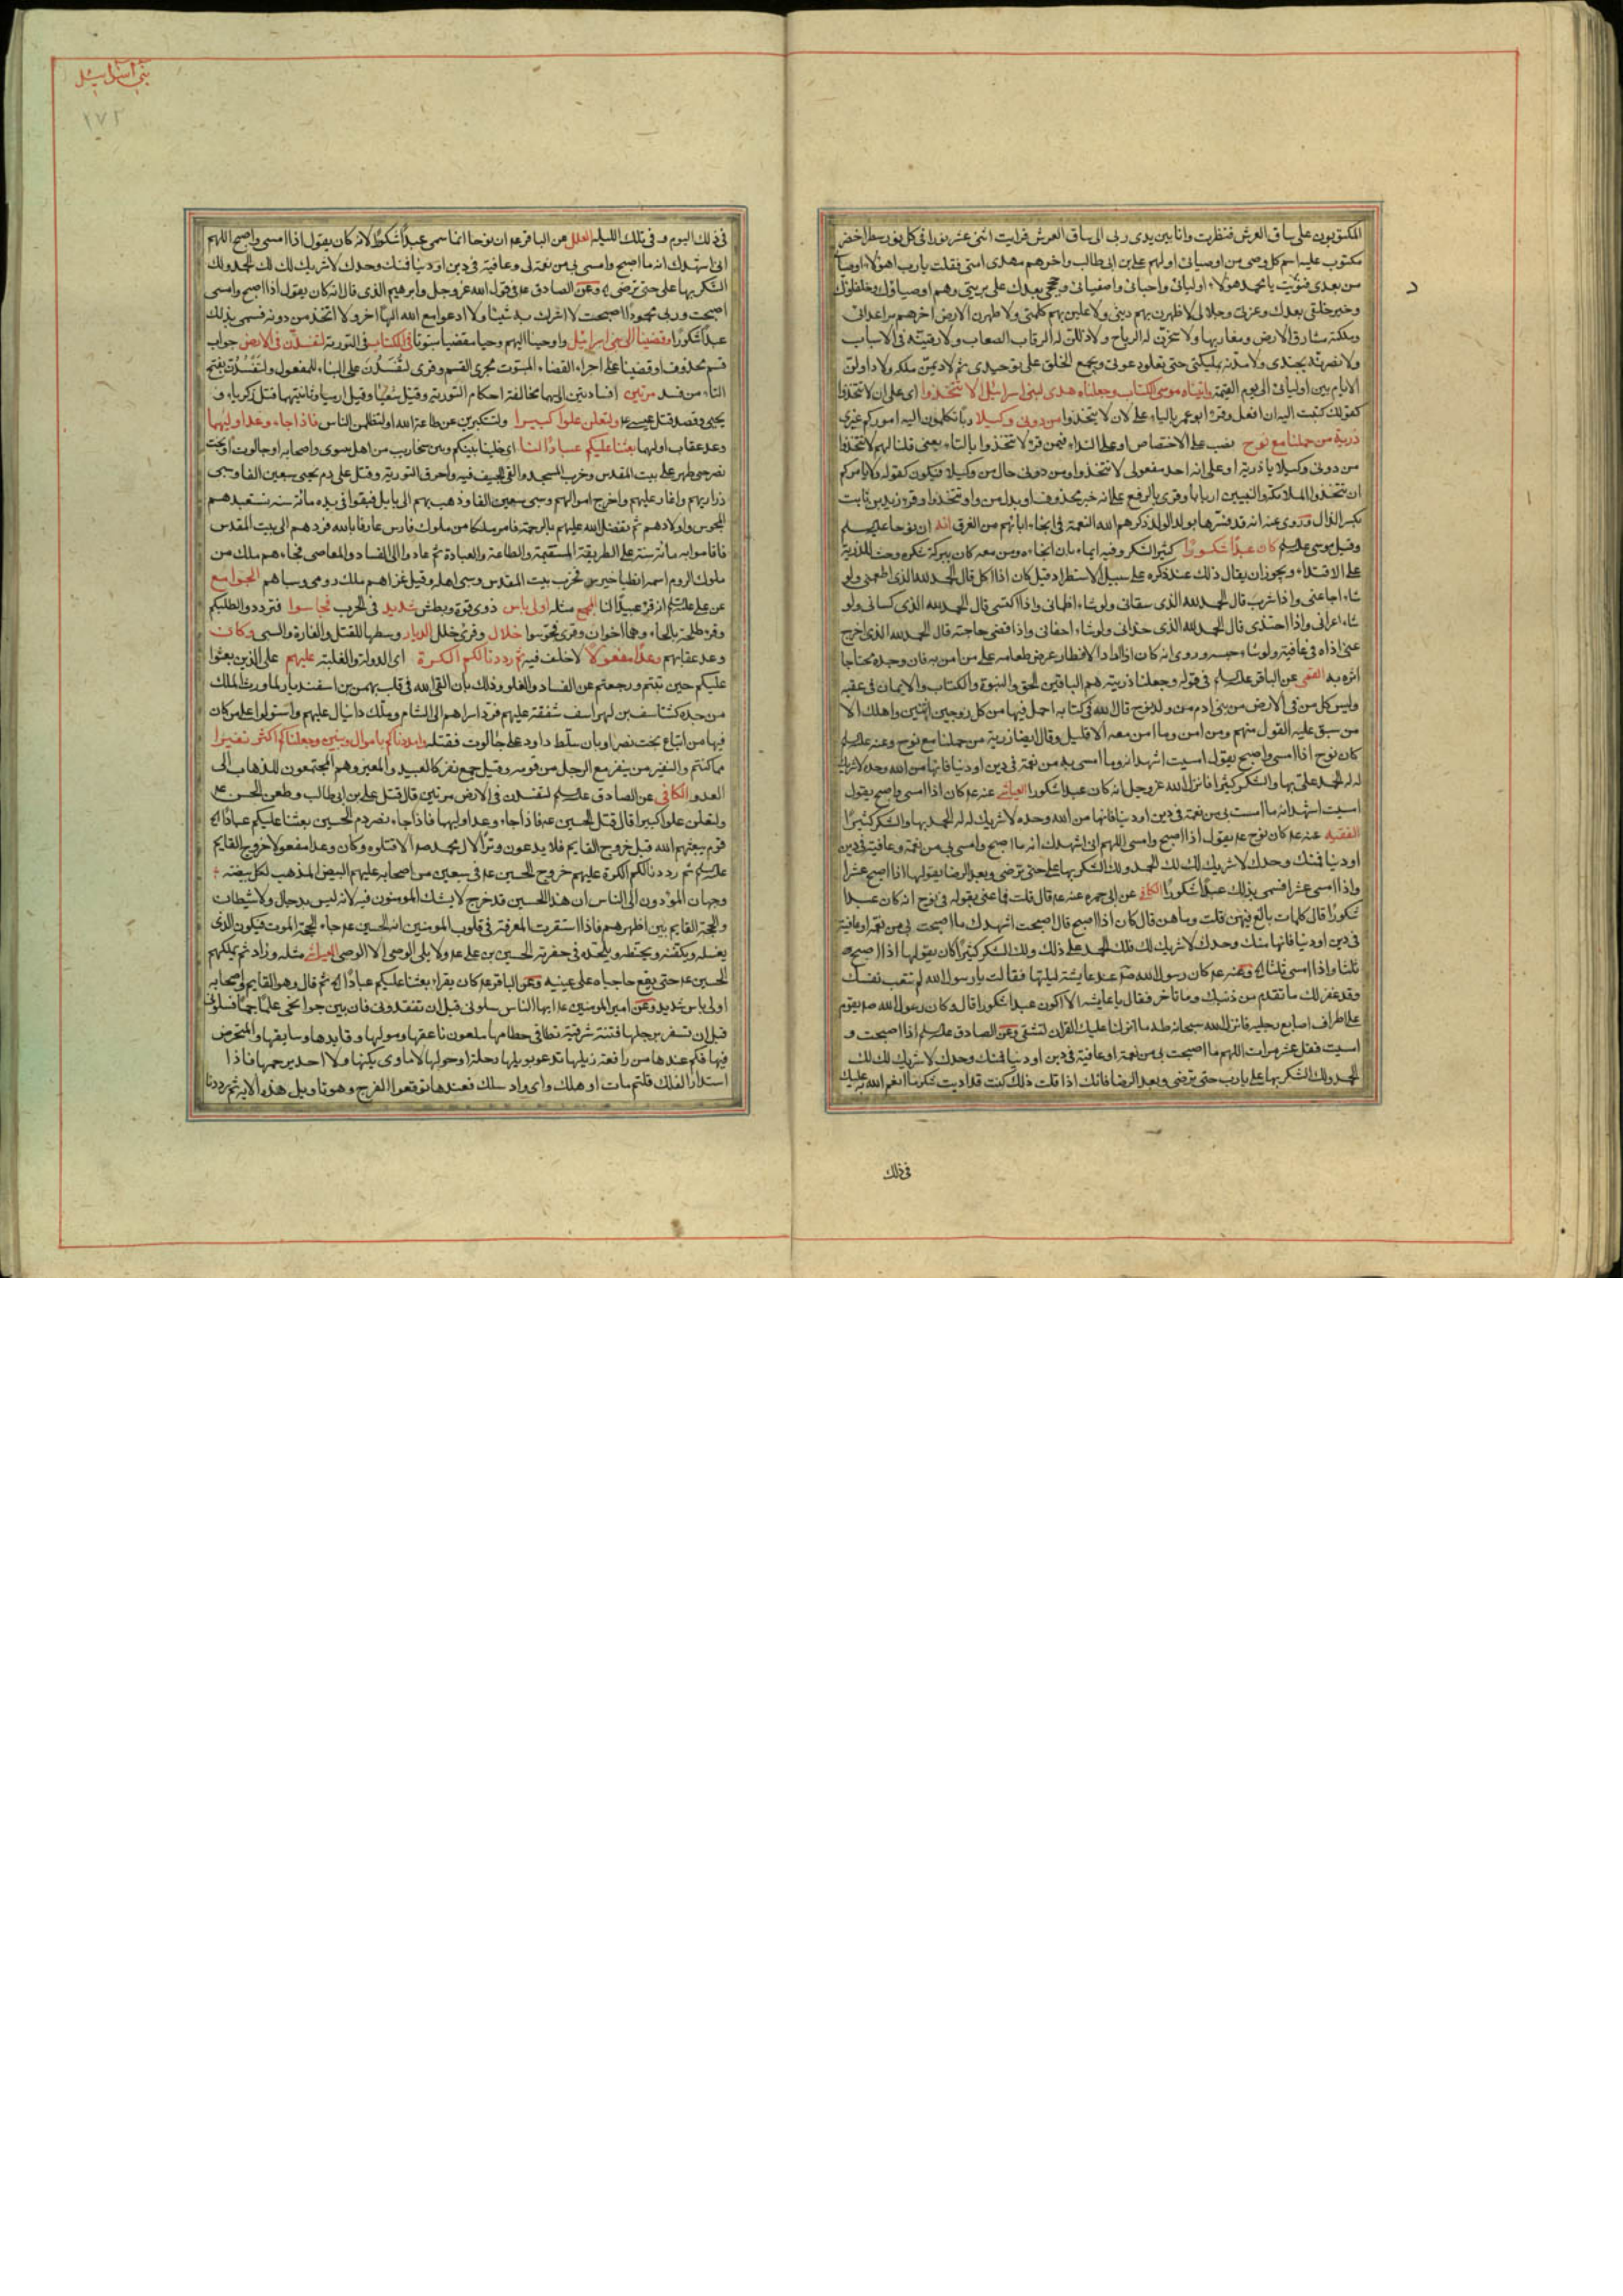 المكتوبون على ساق العرش فنظرت وانا بين يدى ربى الى ساق العرش فرايت اثنى عشر نورا فى كل نور سطر اخضر
مكتوب عليه اسم كل وصى من اوصيائى اولهم على بن ابى طالب واخرهم مهدى امتى فقلت يا رب اهؤلاء اوصيائى
من بعدى فنوديت يا محمد هؤلاء اوليائى واحبائى واصفيائى وحججى بعدك على بريتى وهم اوصياؤك وخلفاؤك
وخير خلقى بعدك وعزتى وجلالى لاظهرن بهم دينى ولاعلين بهم كلمتى ولاطهرن الارض باخرهم من اعدائى
ولاملكنه مشارق الارض ومغاربها ولاسخرن له الرياح ولاذللن له الرقاب الصعاب ولارقينه فى الاسباب
ولانصرنه بجندى ولامدنه بملائكتى حتى يعلو دعوتى ويجمع الخلق على توحيدى ثم لاديمن ملكه ولاداولن
الايام بين اوليائى الى يوم القيمة واتيناه موسى الكتاب وجعلناه هدى لبنى اسرائيل الا تتخذوا اى على ان لا تتخذوا
كقولك كتبت اليه ان افعل وقرء ابو عمر بالياء على لان لا يتخذوا من دونى وكيلا ربا تكلون اليه اموركم غيرى
ذرية من حملنا مع نوح نصب على الاختصاص او على النداء فيمن قرء لا تتخذوا بالتاء يعنى قلنا لهم لا تتخذوا
من دونى وكيلا يا ذرية او على انه احد مفعولى لا تتخذوا ومن دونى حال من وكيلا فيكون كقوله ولا يامركم
ان تتخذوا الملائكة والنبيين اربابا وقرى بالرفع على انه خبر محذوف او بدل من واو تتخذوا وقرء زيد بن ثابت
بكسر الذال وروى عنه انه قد فسرها بولد الولد ذكرهم الله النعمة فى انجاء ابائهم من الغرق انه ان نوحا عليه السلم
وقيل موسى عليه السلم كان عبدا شكورا كثير الشكر وفيه ايماء بان انجاءه ومن معه كان ببركة شكره وحث للذرية
على الاقتداء ويجوز ان يقال ذلك عند ذكره على سبيل الاستطراد قيل كان اذا اكل قال الحمد لله الذى اطعمنى ولو
شاء اجاعنى واذا شرب قال الحمد لله الذى سقانى ولو شاء اظمانى واذا اكتسى قال الحمد لله الذى كسانى ولو
شاء اعرانى واذا احتذى قال الحمد لله الذى حذانى ولو شاء احفانى واذا قضى حاجته قال الحمد لله الذى اخرج
عنى اذاه فى عافية ولو شاء حبسه وروى انه كان اذا اراد الافطار عرض طعامه على من امن به فان وجده محتاجا
اثره به القمى عن الباقر عليه السلم فى قوله وجعلنا ذريته هم الباقين الحق والنبوة والكتاب والايمان فى عقبه
وليس كل من فى الارض من بنى ادم من ولد نوح قال الله فى كتابه احمل فيها من كل زوجين اثنين واهلك الا
من سبق عليه القول منهم ومن امن وما امن معه الا قليل وقال ايضا ذرية من حملنا مع نوح وعنه عليه السلم
كان نوح اذا امسى واصبح يقول امسيت اشهد انه ما امسى بى من نعمة فى دين او دنيا فانها من الله وحده لا شريك
له له الحمد على بها والشكر كثيرا فانزل الله عز وجل انه كان عبدا شكورا العياشى عنه عم كان اذا امسى واصبح يقول
امسيت اشهد انه ما امست بى من نعمة فى دين او دنيا فانها من الله وحده لا شريك له له الحمد بها والشكر كثيرا
الفقيه عنه عم كان نوح عم يقول اذا اصبح وامسى اللهم انى اشهدك انه ما اصبح وامسى بى من نعمة وعافية فى دين
او دنيا فمنك وحدك لا شريك لك لك الحمد ولك الشكر بها على حتى ترضى وبعد الرضا يقولها اذا اصبح عشرا
واذا امسى عشرا فسمى بذلك عبدا شكورا الكافى عن ابى حمزه عنه عم قال قلت فما عنى بقوله فى نوح انه كان عبدا
شكورا قال كلمات بالغ فيهن قلت وما هن قال كان اذا اصبح قال اصبحت اشهدك ما اصبحت بى من نعمة او عافية
فى دين او دنيا فانها منك وحدك لا شريك لك فلك الحمد على ذلك ولك الشكر كثيرا كان يقولها اذا اصبح
ثلثا واذا امسى ثلثا وعنه عم كان رسول الله صم عند عايشة ليلتها فقالت يا رسول الله لم تتعب نفسك
وقد غفر لك ما تقدم من ذنبك وما تاخر فقال يا عايشه الا اكون عبدا شكورا قال وكان رسول الله صم يقوم
على اطراف اصابع رجليه فانزل الله سبحانه طه ما انزلنا عليك القران لتشقى وعن الصادق عليه السلم اذا اصبحت و
امسيت فقل عشر مرات اللهم ما اصبحت بى من نعمة او عافية فى دين او دنيا فمنك وحدك لا شريك لك لك
الحمد ولك الشكر بها على يا رب حتى ترضى وبعد الرضا فانك اذا قلت ذلك كنت قد اديت شكر ما انعم الله به عليك
فى ذلك
بنى اسرائيل
١٧٢
فى ذلك اليوم وفى تلك الليلة العلل عن الباقر عم ان نوحا انما سمى عبدا شكورا لانه كان يقول اذا امسى واصبح اللهم
انى اشهدك انه ما اصبح وامسى بى من نعمة او عافية فى دين او دنيا فمنك وحدك لا شريك لك لك الحمد ولك
الشكر بها على حتى ترضى وعن الصادق عم فى قول الله عز وجل وابرهيم الذى قال انه كان يقول اذا اصبح وامسى
اصبحت وربى محمودا اصبحت لا اشرك به شيئا ولا ادعو مع الله الها اخر ولا اتخذ من دونه فسمى بذلك
عبدا شكورا وقضينا الى بنى اسرائيل واوحينا اليهم وحيا مقضيا مبتوتا فى الكتاب فى التورية لتفسدن فى الارض جواب
قسم محذوف او قضينا على اجراء القضاء المبتوت مجرى القسم وقرى لتفسدن على البناء للمفعول ولتفسدن بفتح
التاء من فسد مرتين افسادتين اوليهما مخالفة احكام التورية وقيل شعيا وقيل ارميا وثانيتهما قتل زكرياء و
يحيى وقصد قتل عيسى عم ولتعلن علوا كبيرا ولتستكبرن عن طاعة الله او لتظلمن الناس فاذا جاء وعد اوليهما
وعد عقاب اوليهما بعثنا عليكم عبادا لنا اى خلينا بينكم وبين سخاريب من اهل نينوى واصحابه او جالوت او بخت
نصر حتى ظهر على بيت المقدس وخرب المسجد والقى الجيف فيه واحرق التورية وقتل على دم يحيى سبعين الفا وسبى
ذراريهم واغار عليهم واخرج اموالهم وسبى سبعين الفا وذهب بهم الى بابل فبقوا فى يده مائة سنة تستعبدهم
المجوس واولادهم ثم تفضل الله عليهم بالرحمة فامر ملكا من ملوك فارس عارفا بالله فردهم الى بيت المقدس
فاقاموا به مائة سنة على الطريقة المستقيمة والطاعة والعبادة ثم عادوا الى الفساد والمعاصى فجاءهم ملك من
ملوك الروم اسمه انطياخوس فخرب بيت المقدس وسبى اهله وقيل غزاهم ملك رومى وسباهم الجوامع
عن على عليه السلم انه قرء عبيدا لنا المجمع مثله اولى باس ذوى قوة وبطش شديد فى الحرب فجاسوا فترددوا لطلبكم
وقرء طلحة بالحاء وهما اخوان وقرى فحوسوا خلال وقرى خلل الديار وسطها للقتل والغارة والسبى وكان
وعد عقابهم وعدا مفعولا لا خلف فيه ثم رددنا لكم الكرة اى الدولة والغلبة عليهم على الذين بعثوا
عليكم حين تبتم ورجعتم عن الفساد والعلو وذلك بان القى الله فى قلب بهمن بن اسفنديار لما ورث الملك
من جده كشتاسف بن لهراسف شفقة عليهم فرد اسراهم الى الشام وملك دانيال عليهم واستولوا على من كان
فيها من اتباع بخت نصر او بان سلط داود على جالوت فقتله وامددناكم باموال وبنين وجعلناكم اكثر نفيرا
مما كنتم والنفير من ينفر مع الرجل من قومه وقيل جمع نفر كالعبيد والمعيز وهم المجتمعون للذهاب الى
العدو الكافى عن الصادق عليه السلم لتفسدن فى الارض مرتين قال قتل على بن ابى طالب وطعن الحسن عم
ولتعلن علوا كبيرا قال قتل الحسين عم فاذا جاء وعد اوليهما فاذا جاء نصر دم الحسين بعثنا عليكم عبادا
قوم يبعثهم الله قبل خروج القايم فلا يدعون وترا لال محمد صم الا قتلوه وكان وعدا مفعولا خروج القايم
عليه السلم ثم رددنا لكم الكرة عليهم خروج الحسين عم فى سبعين من اصحابه عليهم البيض المذهب لكل بيضة
وجهان المؤدون الى الناس ان هذا الحسين قد خرج لا يشك المومنون فيه لانه ليس بدجال ولا شيطان
والحجة القايم بين اظهرهم فاذا استقرت المعرفة فى قلوب المومنين انه الحسين عم جاء الحجة الموت فيكون الذى
يغسله ويكفنه ويحنطه ويلحده فى حفرته الحسين بن على عم ولا يلى الوصى الا الوصى العياشى مثله وزاد ثم يملكهم
الحسين عم حتى يقع حاجباه على عينيه وعن الباقر عم كان يقراء بعثنا عليكم عبادا ثم قال وهو القايم واصحابه
اولى باس شديد وعن امير المومنين عم ايها الناس سلونى قبل ان تفقدونى فان بين جوانحى علما جما فسلونى
قبل ان تشغر برجلها فتنة شرقية تطا فى حطامها ملعون ناعقها ومولها وقايدها وسايقها والمتحرض
فيها فكم عندها من رافعة ذيلها تدعو بويلها دجلة او حولها لا ماوى يكنها ولا احد يرحمها فاذا
استدار الفلك قلتم مات او هلك واى واد سلك فعندها توقعوا الفرج وهو تاويل هذه الاية ثم رددنا